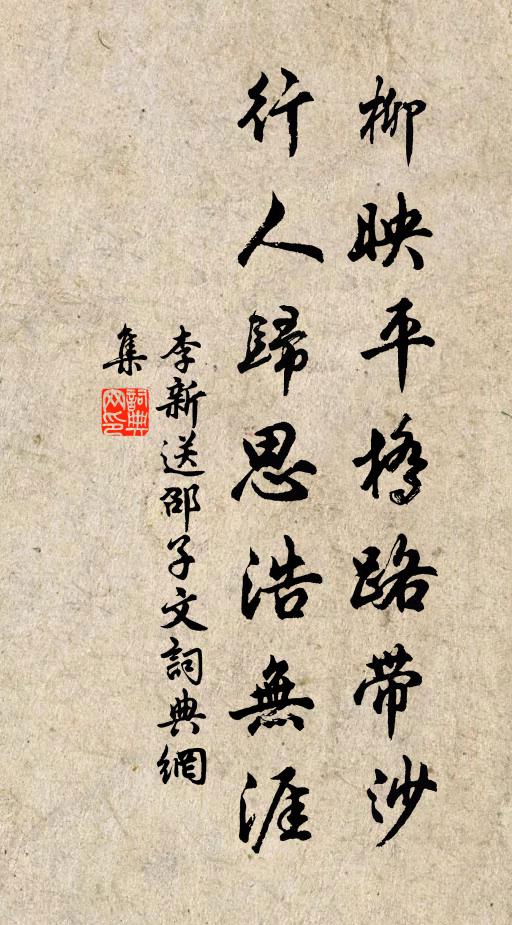 柳映平橋路帶沙
行人歸思浩無涯
李新送邵子文詞典網
集
詞典網印